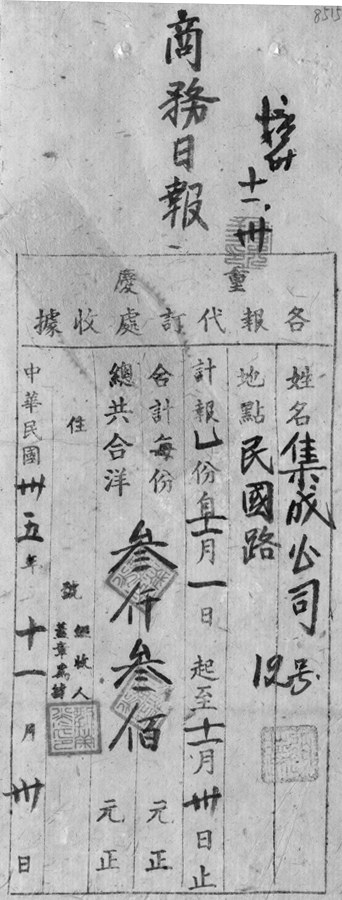 8515
商務日報
十一.卅
重慶
各報代訂處收據
姓名 集成公司
地點 民國路 12号
計報 乙份自十一月一日起至十一月卅日止
合計每份 元正
總共合洋 叁仟叁佰 元正
住 號
經收人
蓋章為憑
中華民國卅五年十一月卅日